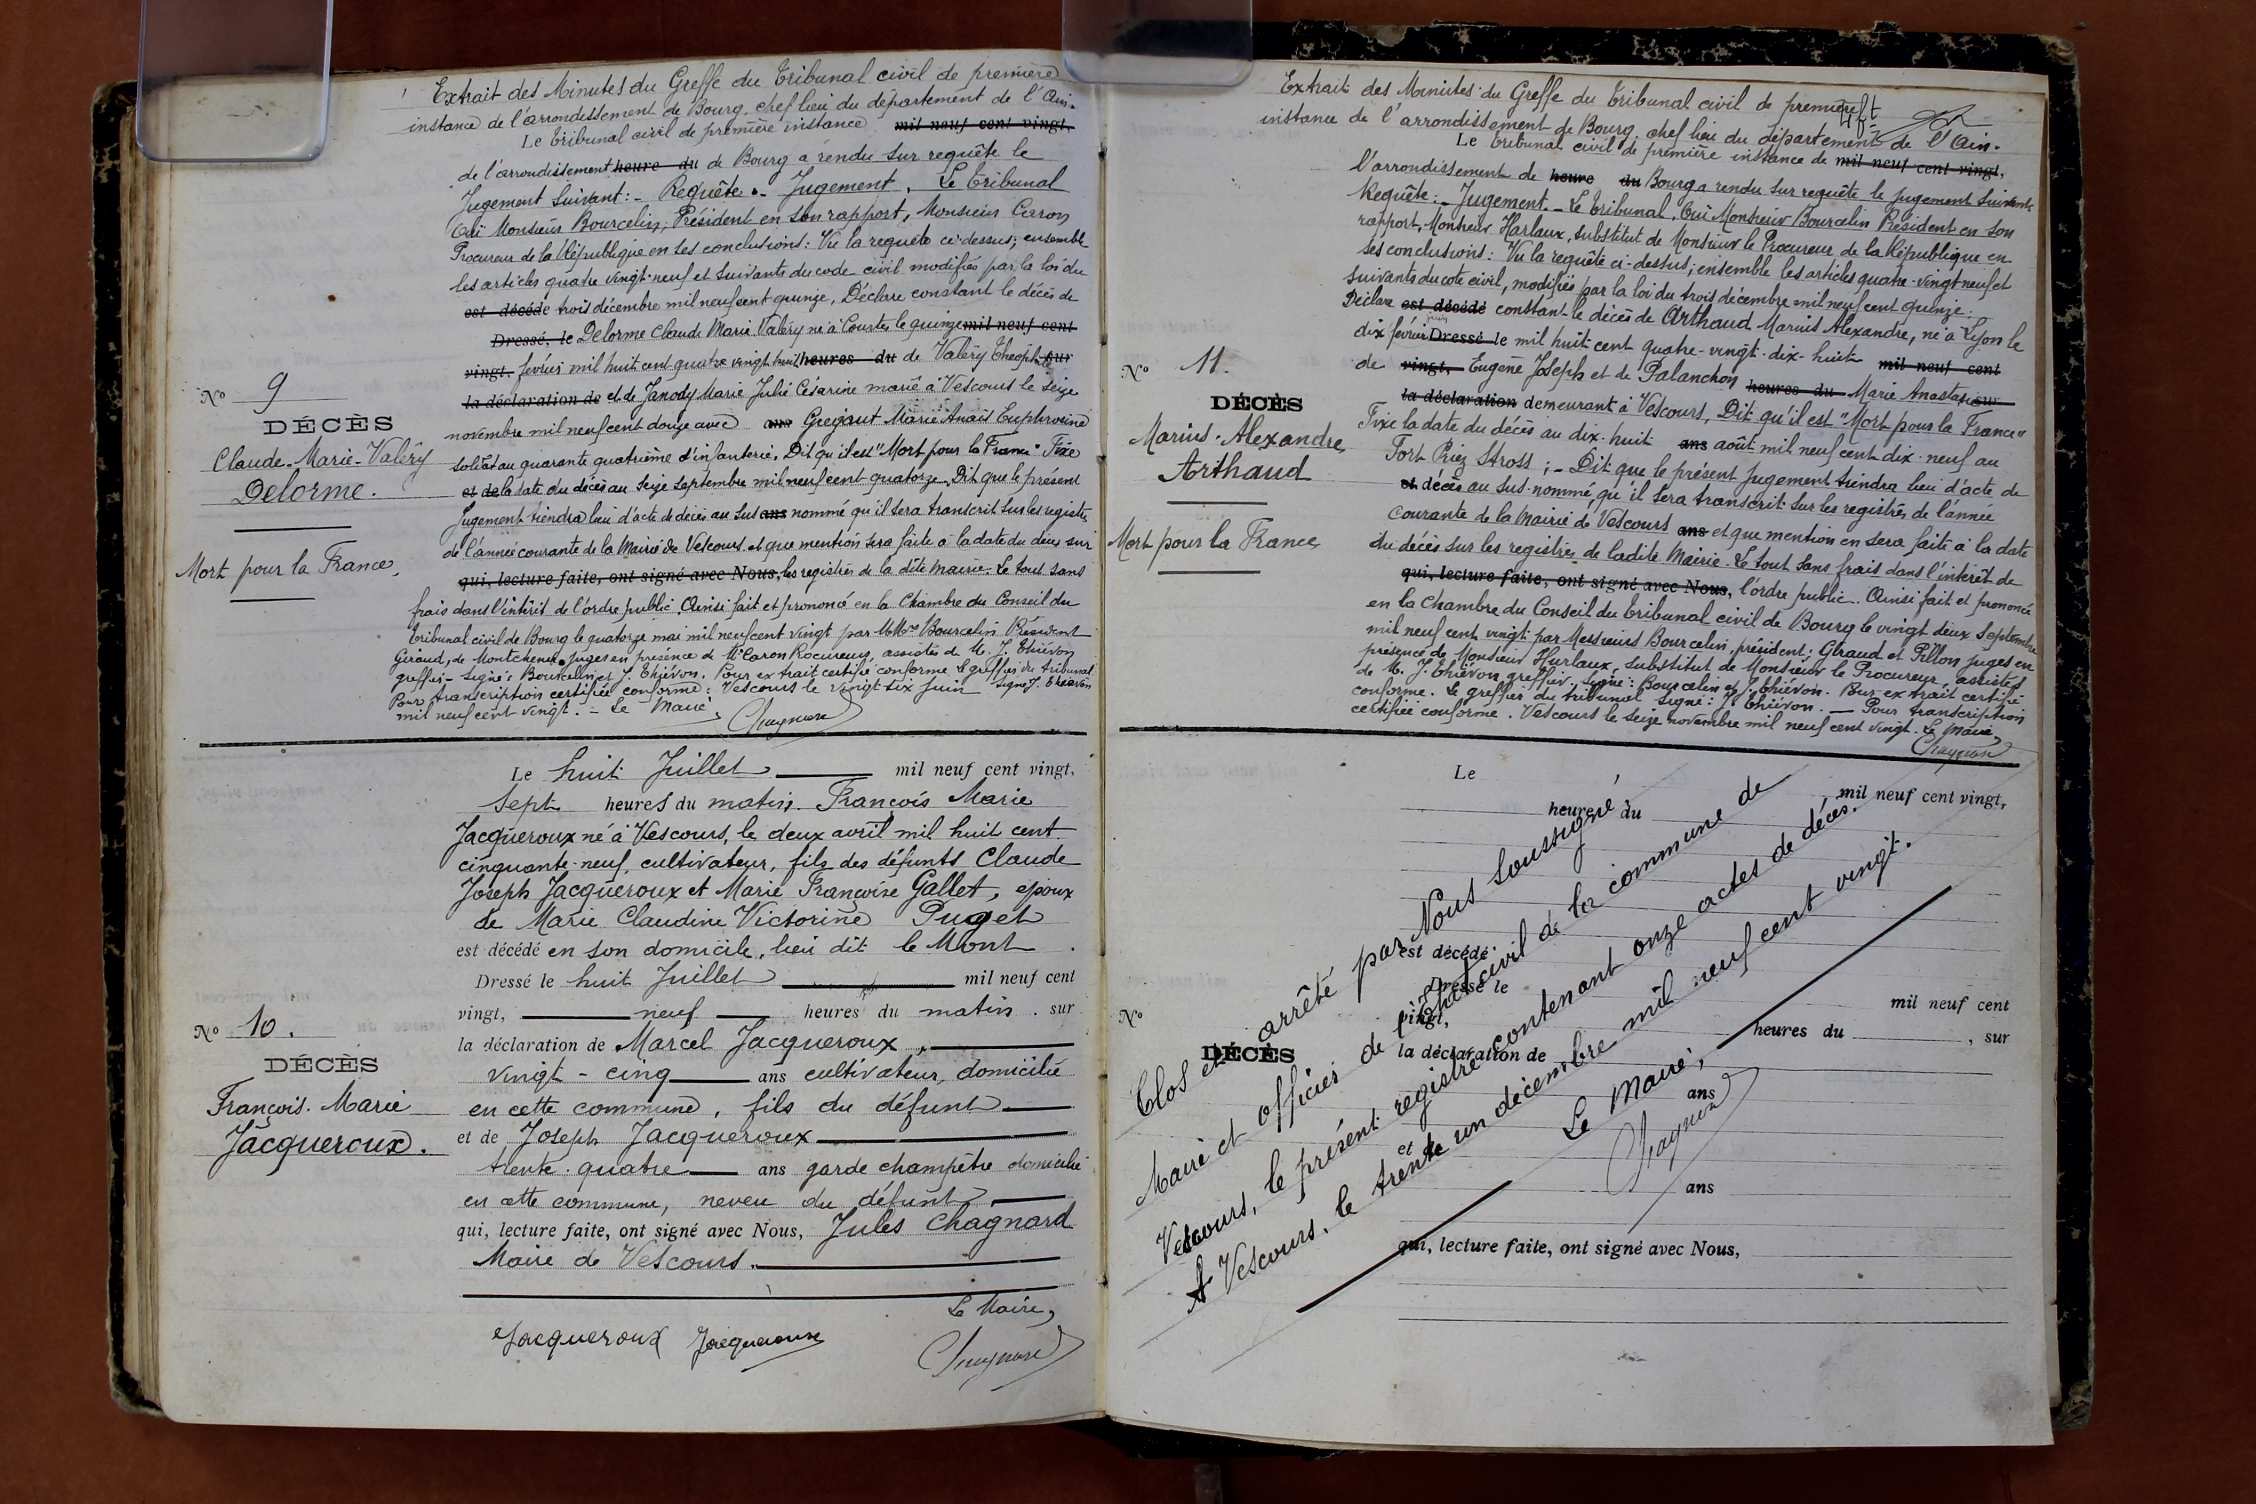 Extrait des Minutes du Greffe du Tribunal civil de première
instance de l'arrondissement de Bourg, chef lieu du département de l'Ain.
Le Tribunal civil de première instance mil neuf cent vingt,
de l'arrondissement heure du de Bourg a rendu sur requête le
Jugement Suivant :- Requête.- Jugement. Le Tribunal
Ouï Monsieur Bourcelin, Président en son rapport, Monsieur Caron
Procureur de la République en ses conclusions : Vu la requête ci-dessus ; ensemble
les articles quatre vingt-neuf et suivants du code civil modifiés par la loi du
est décédé trois décembre mil neuf cent quinze, Déclare constant le décès de
Dressé, le Delorme Claude Marie Valéry né à Courtes le quinze mil neuf cent
vingt, février mil huit cent quatre vingt huit heures du de Valéry Théophile sur
la déclaration de et de Janody Marie Julie Césarine marié à Vescours le seize
novembre mil neuf cent douze avec ans Gregaut Marie Anaïs Euphrosine
soldat au quarante quatrième d'infanterie, Dit qu'il est "Mort pour la France" Fixe
et de la date du décès au seize septembre mil neuf cent quatorze. Dit que le présent
Jugement tiendra lieu d'acte de décès au sus ans nommé qu'il sera transcrit sur les registres
de l'année courante de la Mairie de Vescours et que mention sera faite à la date du décès sur
qui, lecture faite, ont signé avec Nous, les registres de la dite Mairie. Le tout sans
frais dans l'intérêt de l'ordre public. Ainsi fait et prononcé en la Chambre du Conseil du
tribunal civil de Bourg le quatorze mai mil neuf cent vingt par MM. Bourcelin Président
Giraud, de Montchenu Juges en présence de Mr Caron Procureur, assistés de M. J. Thiévon
greffier - Signé : Bourcelin et J. Thiévon. Pour extrait certifié conforme le greffier du tribunal
Signé J. Thiévon
Pour transcription certifiée conforme : Vescours le vingt six Juin
mil neuf cent vingt. - Le Maire,
Chagnard
No 9
DÉCÈS
Claude-Marie-Valéry
Delorme.
Mort pour la France,
Le huit Juillet mil neuf cent vingt,
Sept heures du matin François Marie
Jacqueroux né à Vescours, le deux avril mil huit cent
cinquante-neuf, cultivateur, fils des défunts Claude
Joseph Jacqueroux et Marie Françoise Gallet, époux
de Marie Claudine Victorine Puget
est décédé en son domicile, lieu dit le Mont .
Dressé le huit Juillet mil neuf cent
vingt, neuf heures du matin . sur
la déclaration de Marcel Jacqueroux,
vingt - cinq ans cultivateur, domicilié
en cette commune, fils du défunt
et de Joseph Jacqueroux
trente-quatre ans garde champêtre domicilié
en cette commune, neveu du défunt
qui, lecture faite, ont signé avec Nous, Jules Chagnard
Maire de Vescours.
Le Maire,
Jacqueroux Jacqueroux Chagnard
No 10.
DÉCÈS
François. Marie
Jacqueroux.
Extrait des Minutes du Greffe du Tribunal civil de première
instance de l'arrondissement de Bourg, chef lieu du département de l'Ain.
Le Tribunal civil de première instance de mil neuf cent vingt,
l'arrondissement de heure du Bourg a rendu sur requête le jugement suivant :
Requête :- Jugement.- Le Tribunal, Ouï Monsieur Bourcelin Président en son
rapport, Monsieur Harlaux, substitut de Monsieur le Procureur de la République en
ses conclusions : Vu la requête ci-dessus ; ensemble les articles quatre-vingt neuf et
suivants du cote civil, modifiés par la loi du trois décembre mil neuf cent quinze :
Déclare est décédé constant le décès de Arthaud Marius Alexandre, né à Lyon le
dix février Dressé le mil huit cent quatre-vingt-dix-huit mil neuf cent
de vingt, Eugène Joseph et de Palanchon heures du Marie Anastasie sur
la déclaration demeurant à Vescours, Dit qu'il est "Mort pour la France"
Fixe la date du décès au dix-huit ans août mil neuf cent dix-neuf au
Fort Priez Stross ; - Dit que le présent Jugement tiendra lieu d'acte de
et décès au sus-nommé, qu'il sera transcrit sur les registres de l'année
courante de la Mairie de Vescours ans et que mention en sera faite à la date
du décès sur les registres de ladite Mairie. Le tout sans frais dans l'intérêt de
qui, lecture faite, ont signé avec Nous, l'ordre public. Ainsi fait et prononcé
en la Chambre du Conseil du tribunal civil de Bourg le vingt deux Septembre
mil neuf cent vingt par Messieurs Bourcelin, président ; Giraud et Pillon juges en
présence de Monsieur Hurlaux, substitut de Monsieur le Procureur, assistés
de M. J. Thiévon greffier. Signé : Bourcelin et J. Thiévon. Pour extrait certifié
conforme. Le greffier du tribunal signé : J. Thiévon. - Pour transcription
certifiée conforme. Vescours le seize novembre mil neuf cent vingt. Le Maire,
Chagnard
No 11.
DÉCÈS
Marius-Alexandre
Arthaud
Mort pour la France
Le mil neuf cent vingt,
heure du
est décédé
Dressé le mil neuf cent
vingt, heures du , sur
la déclaration de
ans
et
ans
qui, lecture faite, ont signé avec Nous,
No
DÉCÈS
Clos et arrêté par Nous soussigné,
Maire et officier de l'Etat civil de la commune de
Vescours, le présent registre contenant onze actes de décès.
A Vescours, le trente un décembre mil neuf cent vingt.
Le Maire,
Chagnard